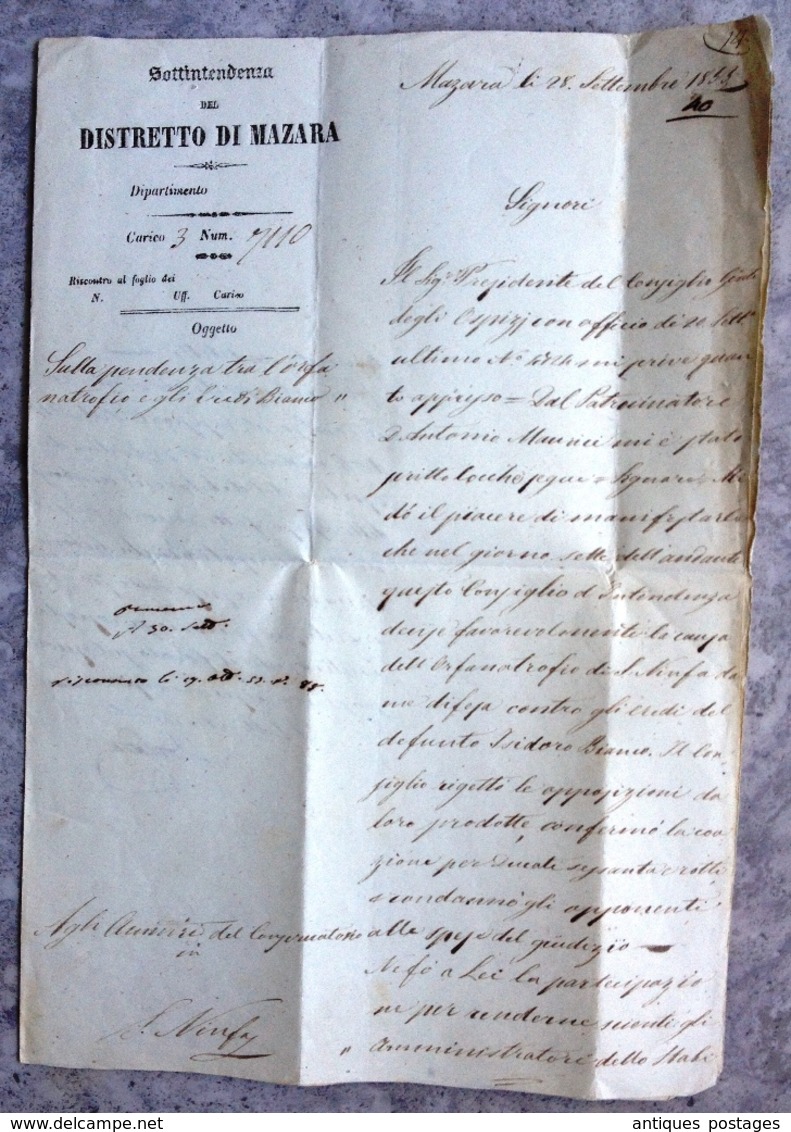 Sottintendenza
DEL
DISTRETTO DI MAZARA
Dipartimento
Carico 3 Num. 7110
Riscontro al foglio dei
N. Uff. Carico
Oggetto
Sulla pendenza tra l'orfa
natrofio e gli Eredi Bianco "
a 30. Sett.
li 19. Ott. 53. N. 85.
Agli Ammiri del Conservatorio
in
S. Ninfa
Mazara li 28. Settembre 1853
40
Signori
Il Sigr. Presidente del Consiglio Gnle
degli Ospizj con officio di 20 Sett.e
ultimo N.o mi scrive quan
to appresso = Dal Patrocinatore
D. Antonio Maurici mi è stato
scritto locchè segue = Signore = Mi
dò il piacere di manifestarle
che nel giorno sette dell'andante
questo Consiglio d'Intendenza
decise favorevolmente la causa
dell'Orfanatrofio di S. Ninfa da
me difesa contro gli eredi del
defunto Isidoro Bianco. Il Con
siglio rigettò le opposizioni da
loro prodotte, confermò la coa
zione per Ducati sessanta e rotti
e condannò gli opponenti
alle spese del giudizio —
Nefò a Lei la partecipazio
ne per renderne scienti gli
" Amministratori dello Stabi
antiques postages